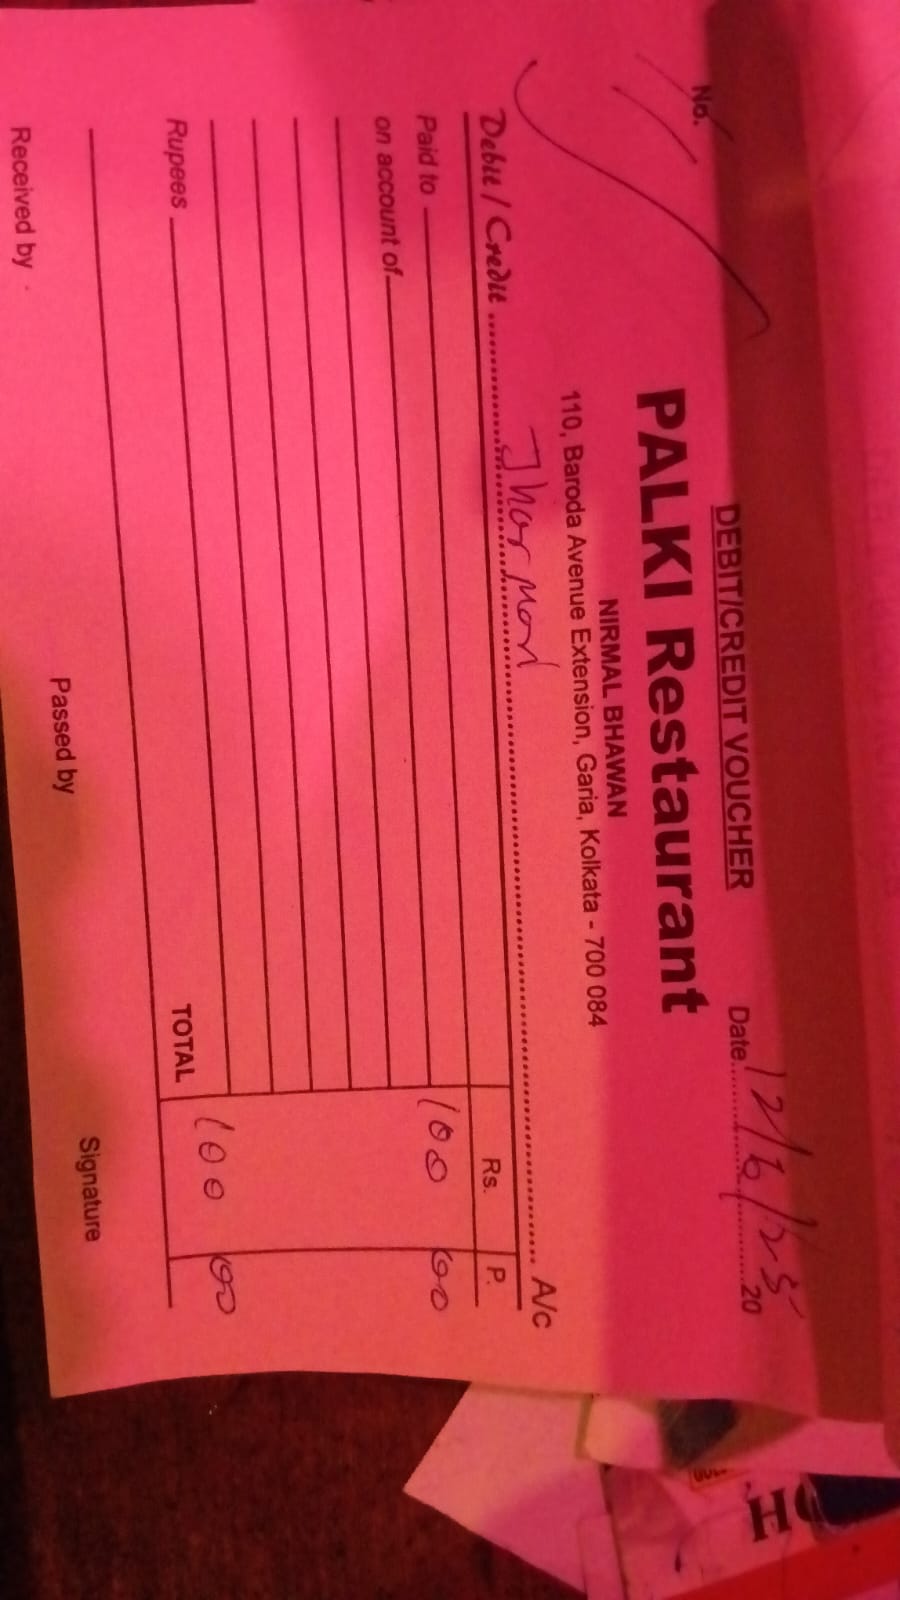 DEBIT/CREDIT VOUCHER
No.
Date 12/6/25 20
PALKI Restaurant
NIRMAL BHAWAN
110, Baroda Avenue Extension, Garia, Kolkata - 700 084
Debit / Credit Thormon A/c
Rs. P.
Paid to 100 00
on account of
Rupees TOTAL 100 00
Received by Passed by Signature